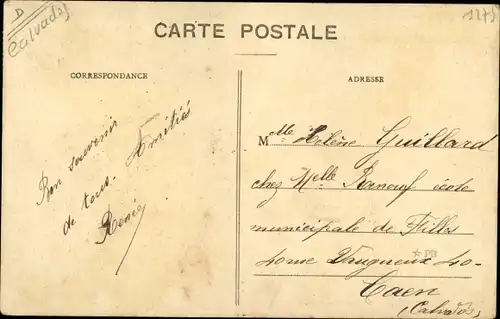 D
Calvados
1273
CARTE POSTALE
CORRESPONDANCE
ADRESSE
Bon souvenir
de tous.
Amitiés
Renée
Melle Hélène Guillard
chez Melle école
municipale de Filles
40 Vaugueux 40
Caen
(Calvados)